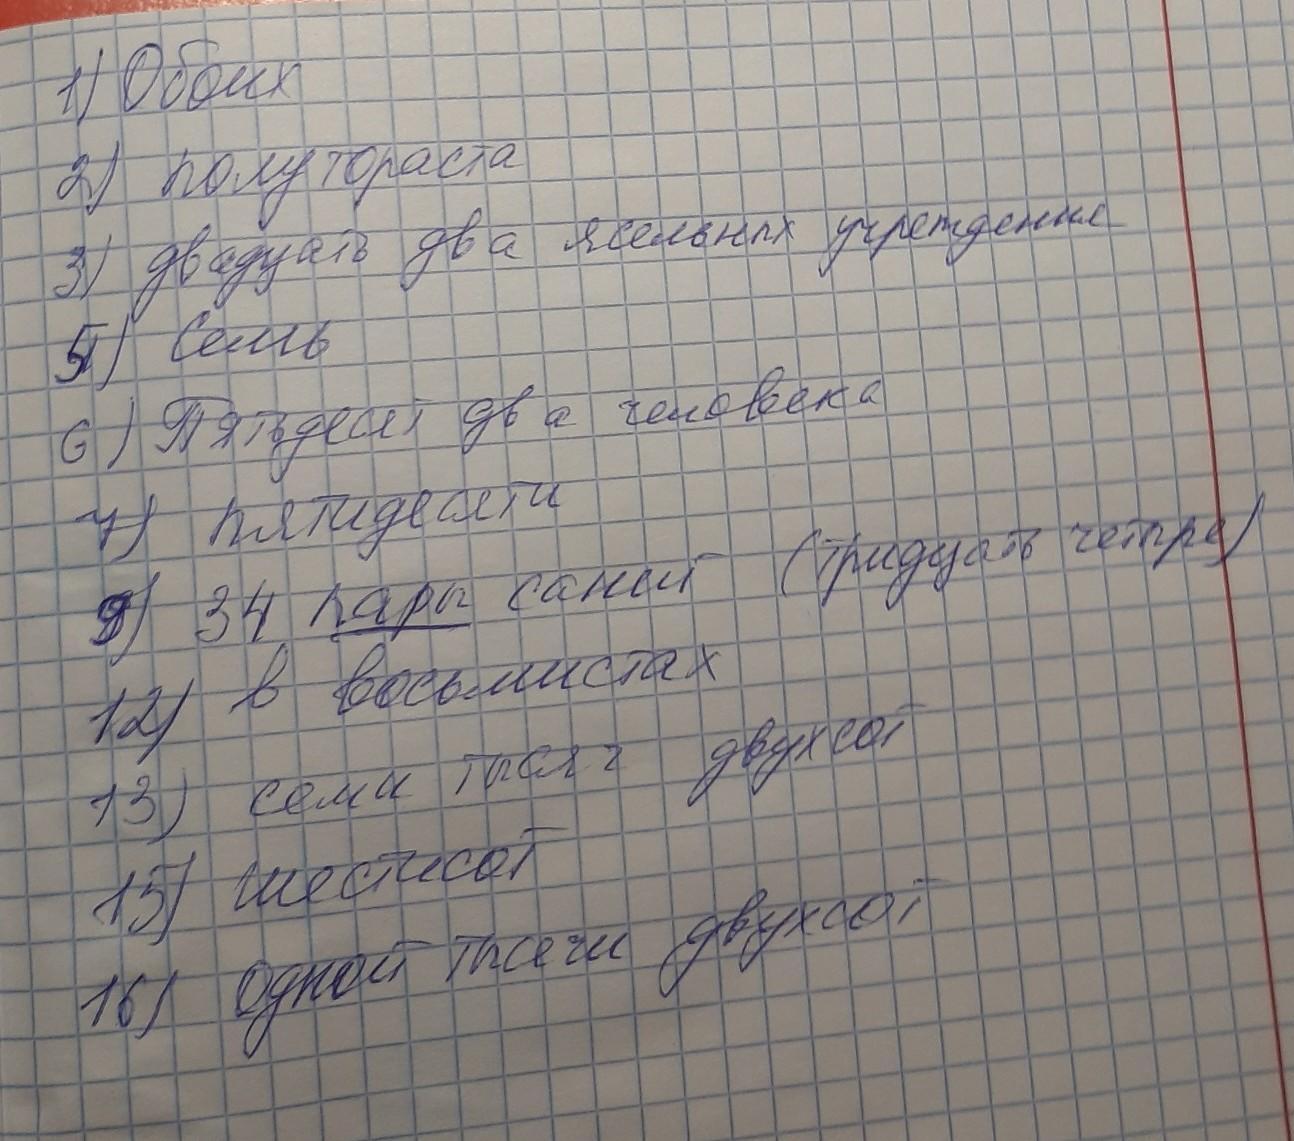 1) Обоих
2) полутораста
3) двадцать два ясельных учреждения
5) Семь
6) Пятьдесят два человека
7) пятидесяти
9) 34 пары саней (тридцать четыре)
12) в восьмистах
13) семи тысяч двухсот
15) шестисот
16) Одной тысечи двухсот